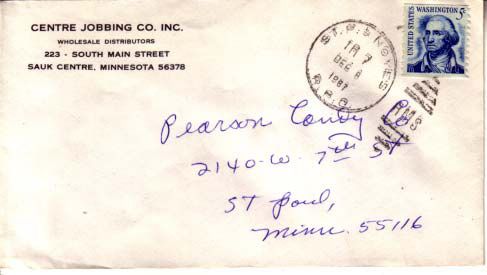 CENTRE JOBBING CO. INC.
WHOLESALE DISTRIBUTORS
223 - SOUTH MAIN STREET
SAUK CENTRE, MINNESOTA 56378
TR 7
DEC 8
1967
R.P.O.
RMS
UNITED STATES
WASHINGTON
5¢
Pearson Candy Co
2140-W. 7th St
St Paul,
Minn. 55116